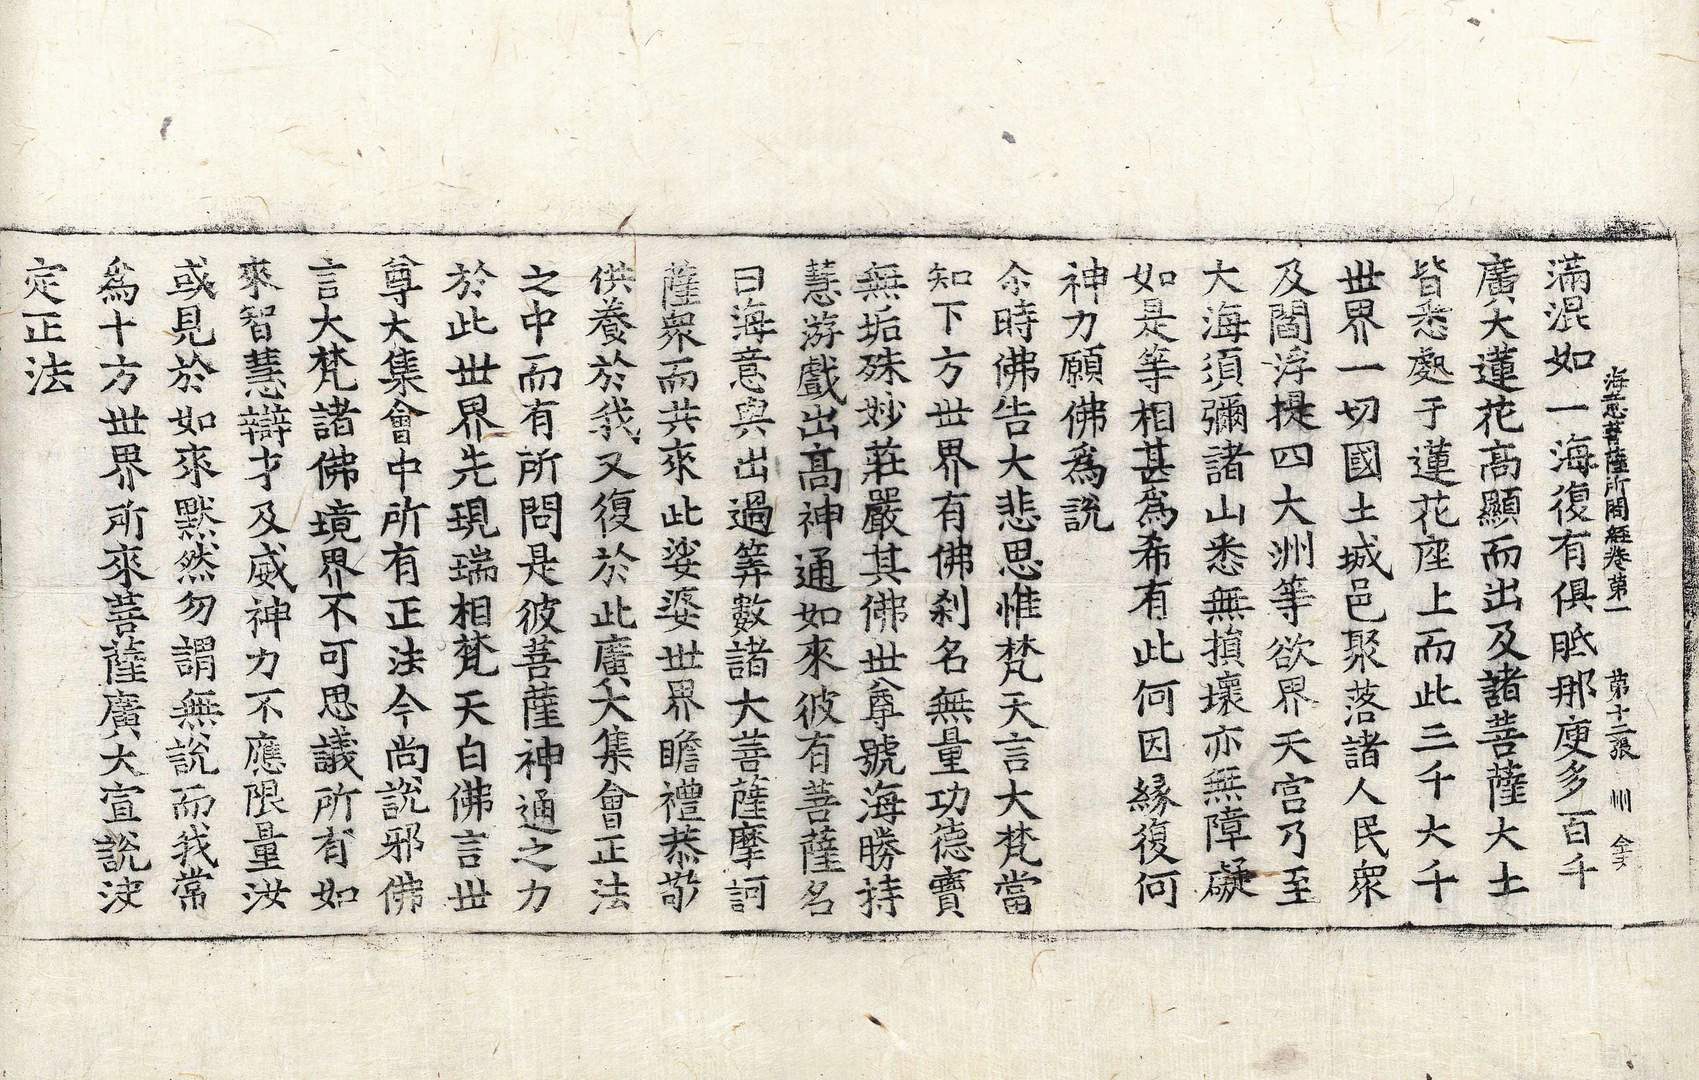 海意菩薩所問經卷第一 第十二張 州
滿混如一海復有俱胝那庾多百千
廣大蓮花高顯而出及諸菩薩大士
皆悉處于蓮花座上而此三千大千
世界一切國土城邑聚落諸人民衆
及閻浮提四大洲等欲界天宮乃至
大海須彌諸山悉無損壞亦無障礙
如是等相甚爲希有此何因緣復何
神力願佛爲說
尒時佛告大悲思惟梵天言大梵當
知下方世界有佛剎名無量功德寶
無垢殊妙莊嚴其佛世尊號海勝持
慧游戲出高神通如來彼有菩薩名
曰海意與出過筭數諸大菩薩摩訶
薩衆而共來此娑婆世界瞻禮恭敬
供養於我又復於此廣大集會正法
之中而有所問是彼菩薩神通之力
於此世界先現瑞相梵天白佛言世
尊大集會中所有正法今尚說邪佛
言大梵諸佛境界不可思議所有如
來智慧辯才及威神力不應限量汝
或見於如來默然勿謂無說而我常
爲十方世界所來菩薩廣大宣說決
定正法